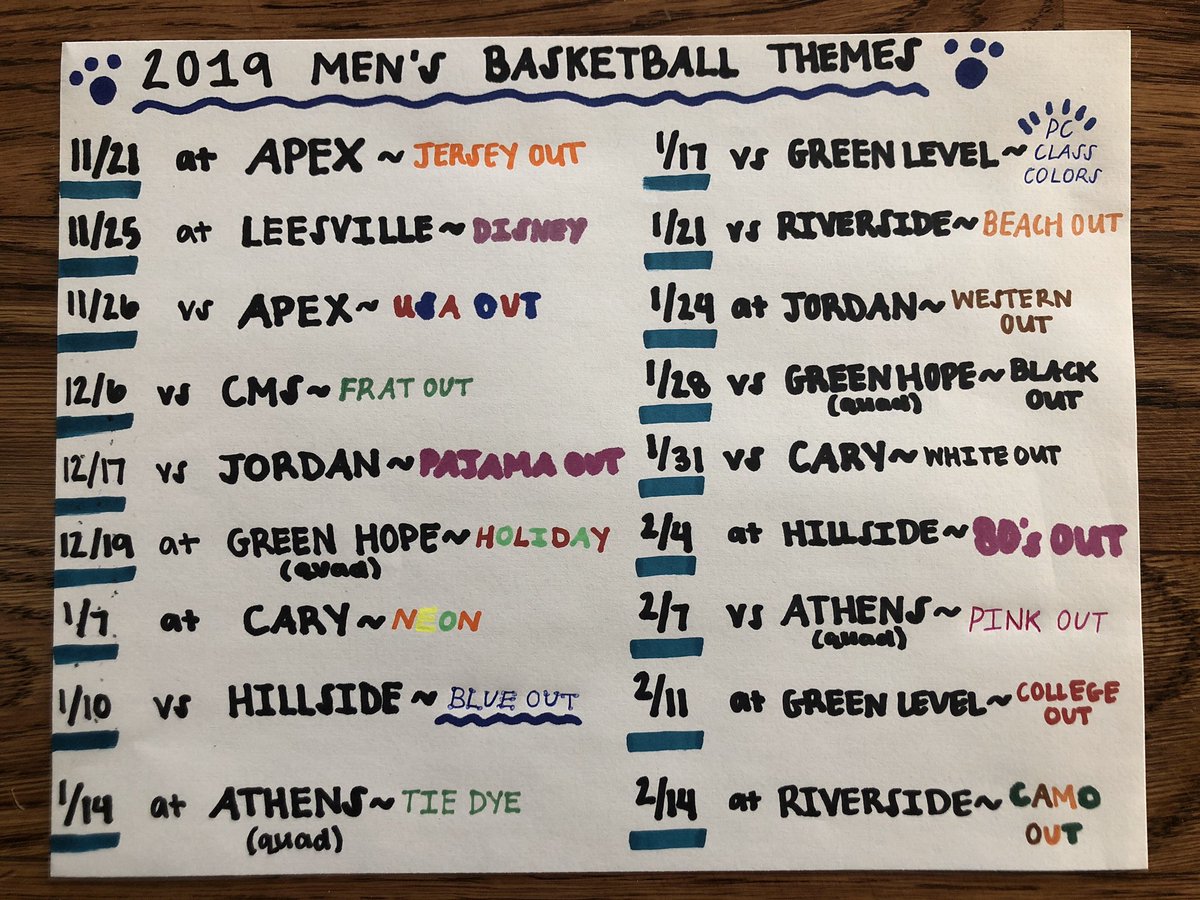 2019 MEN'S BASKETBALL THEMES
11/21 at APEX ~ JERSEY OUT
11/25 at LEESVILLE ~ DISNEY
11/26 vs APEX ~ USA OUT
12/6 vs CMS ~ FRAT OUT
12/17 vs JORDAN ~ PAJAMA OUT
12/19 at GREEN HOPE ~ HOLIDAY
(quad)
1/7 at CARY ~ NEON
1/10 vs HILLSIDE ~ BLUE OUT
1/14 at ATHENS ~ TIE DYE
(quad)
1/17 vs GREEN LEVEL ~ PC
CLASS
COLORS
1/21 vs RIVERSIDE ~ BEACH OUT
1/24 at JORDAN ~ WESTERN
OUT
1/28 vs GREEN HOPE ~ BLACK
(quad) OUT
1/31 vs CARY ~ WHITE OUT
2/4 at HILLSIDE ~ 80's OUT
2/7 vs ATHENS ~ PINK OUT
(quad)
2/11 at GREEN LEVEL ~ COLLEGE
OUT
2/14 at RIVERSIDE ~ CAMO
OUT